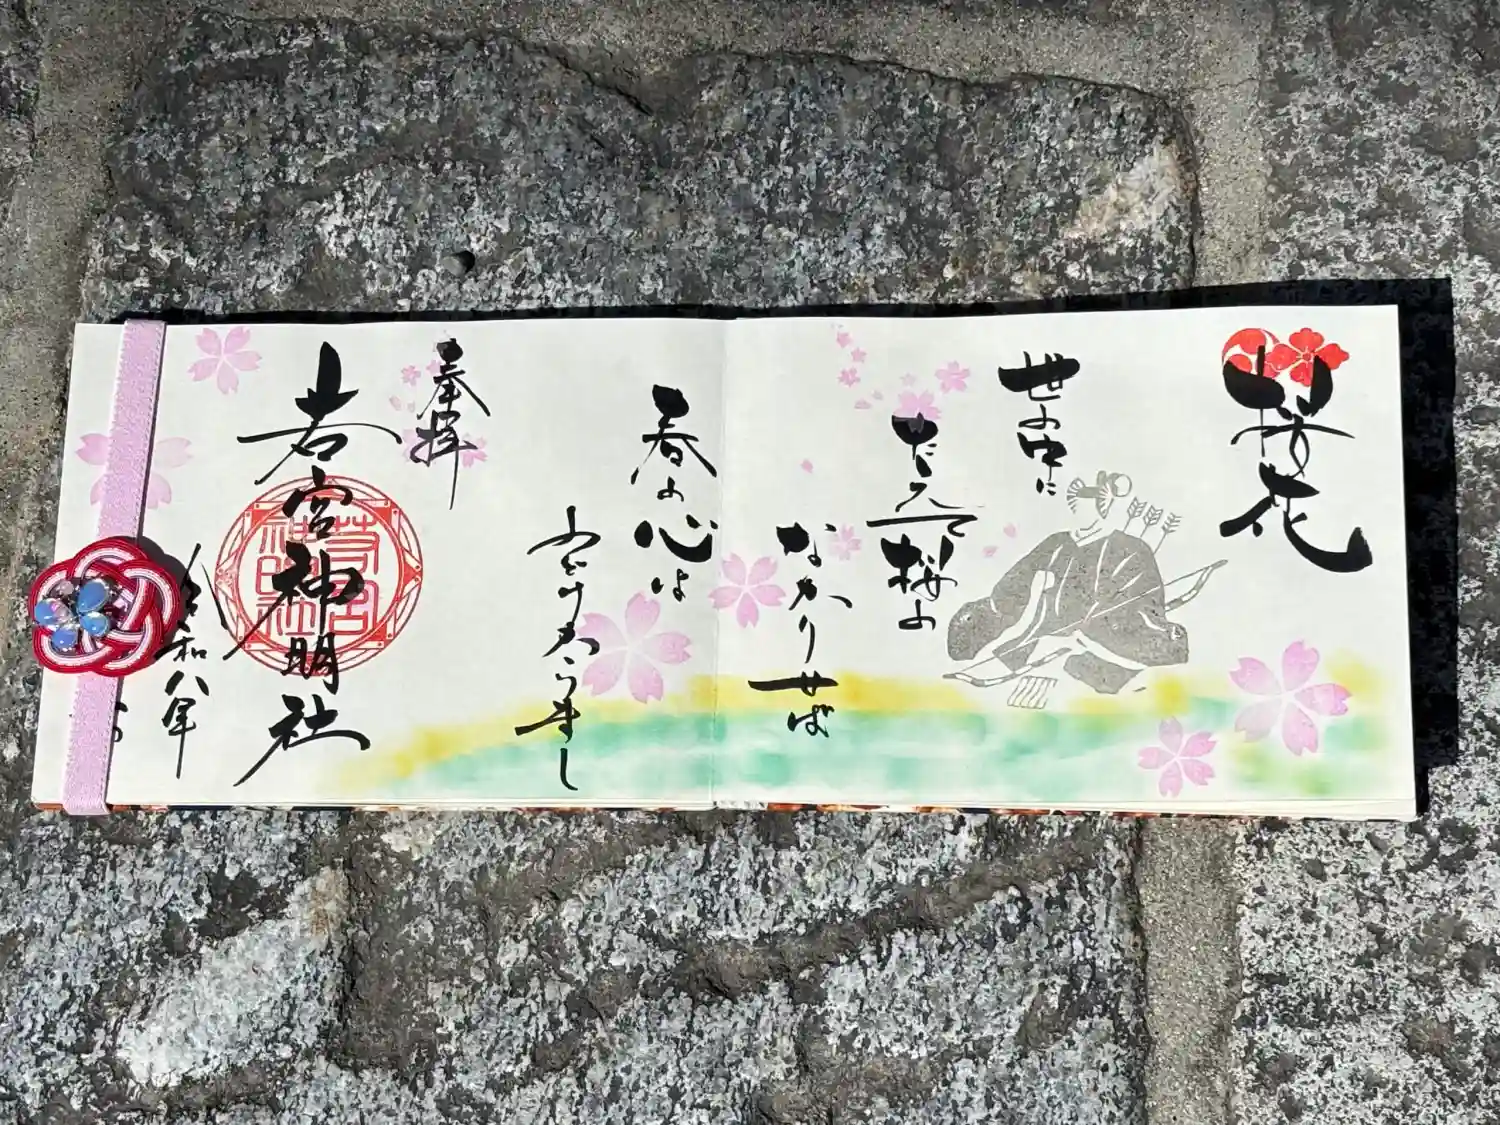 桜花
世の中に
たえて桜の
なかりせば
春の心は
のどけからまし
奉拝
若宮神明社
若宮
神明社
令和八年